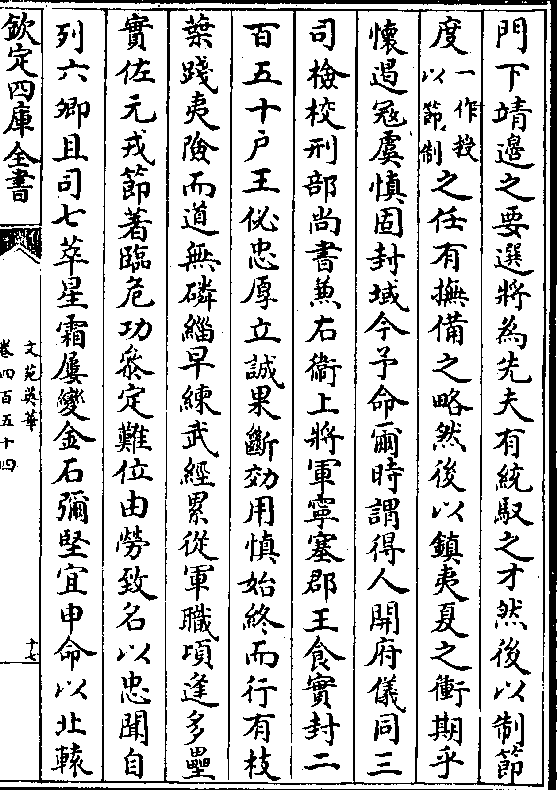 門下靖邊之要選將為先夫有統馭之才然後以制節
度一作授以節制之任有撫備之略然後以鎮夷夏之衝期乎
懷遏寇虞慎固封域今予命爾時謂得人開府儀同三
司檢校刑部尚書兼右衞上將軍寧塞郡王食實封二
百五十户王佖忠厚立誠果斷効用慎始終而行有枝
葉踐夷險而道無磷緇早練武經累從軍職項逢多壘
實佐元戎節著臨危功叅定難位由勞致名以忠聞自
列六卿且司七萃星霜屢變金石彌堅宜申命以北轅
欽定四庫全書
文苑英華
卷四百五十四
十七